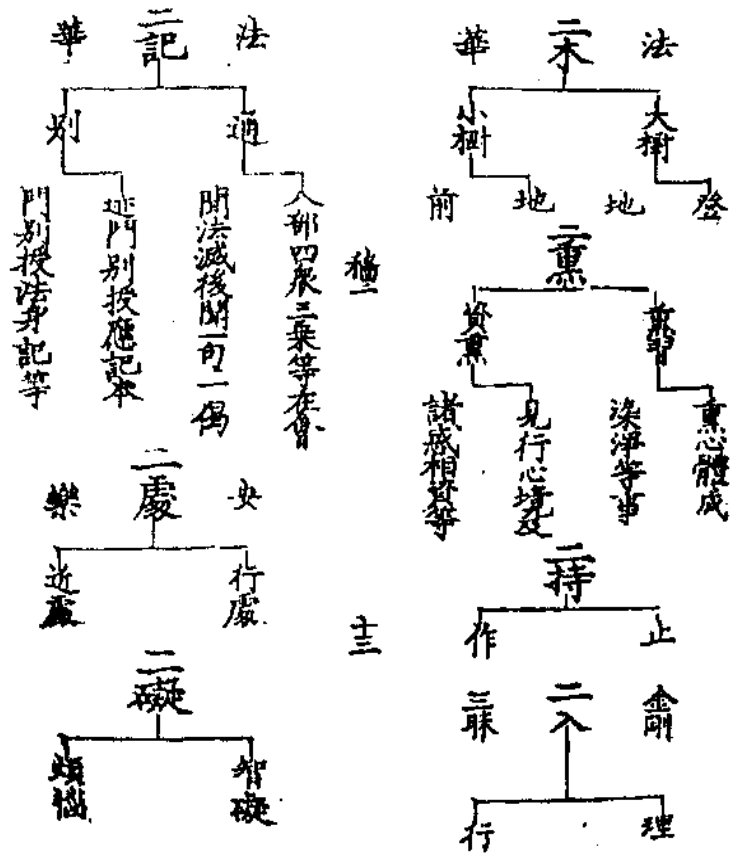 法 二木 華
大樹 小樹
登
地
地
前
二熏
熏習 資熏
熏心體成
染淨等事
見行心境及
諸惑相資等
二持
止 作
金剛 二入 三昧
理 行
法 二記 華
通 別
八部四衆三乘等在會
聞法滅後聞一句一偈
迹門別授應記本
門別授法身記等
安 二處 樂
行處 近處
二礙
智礙 煩惱
十三